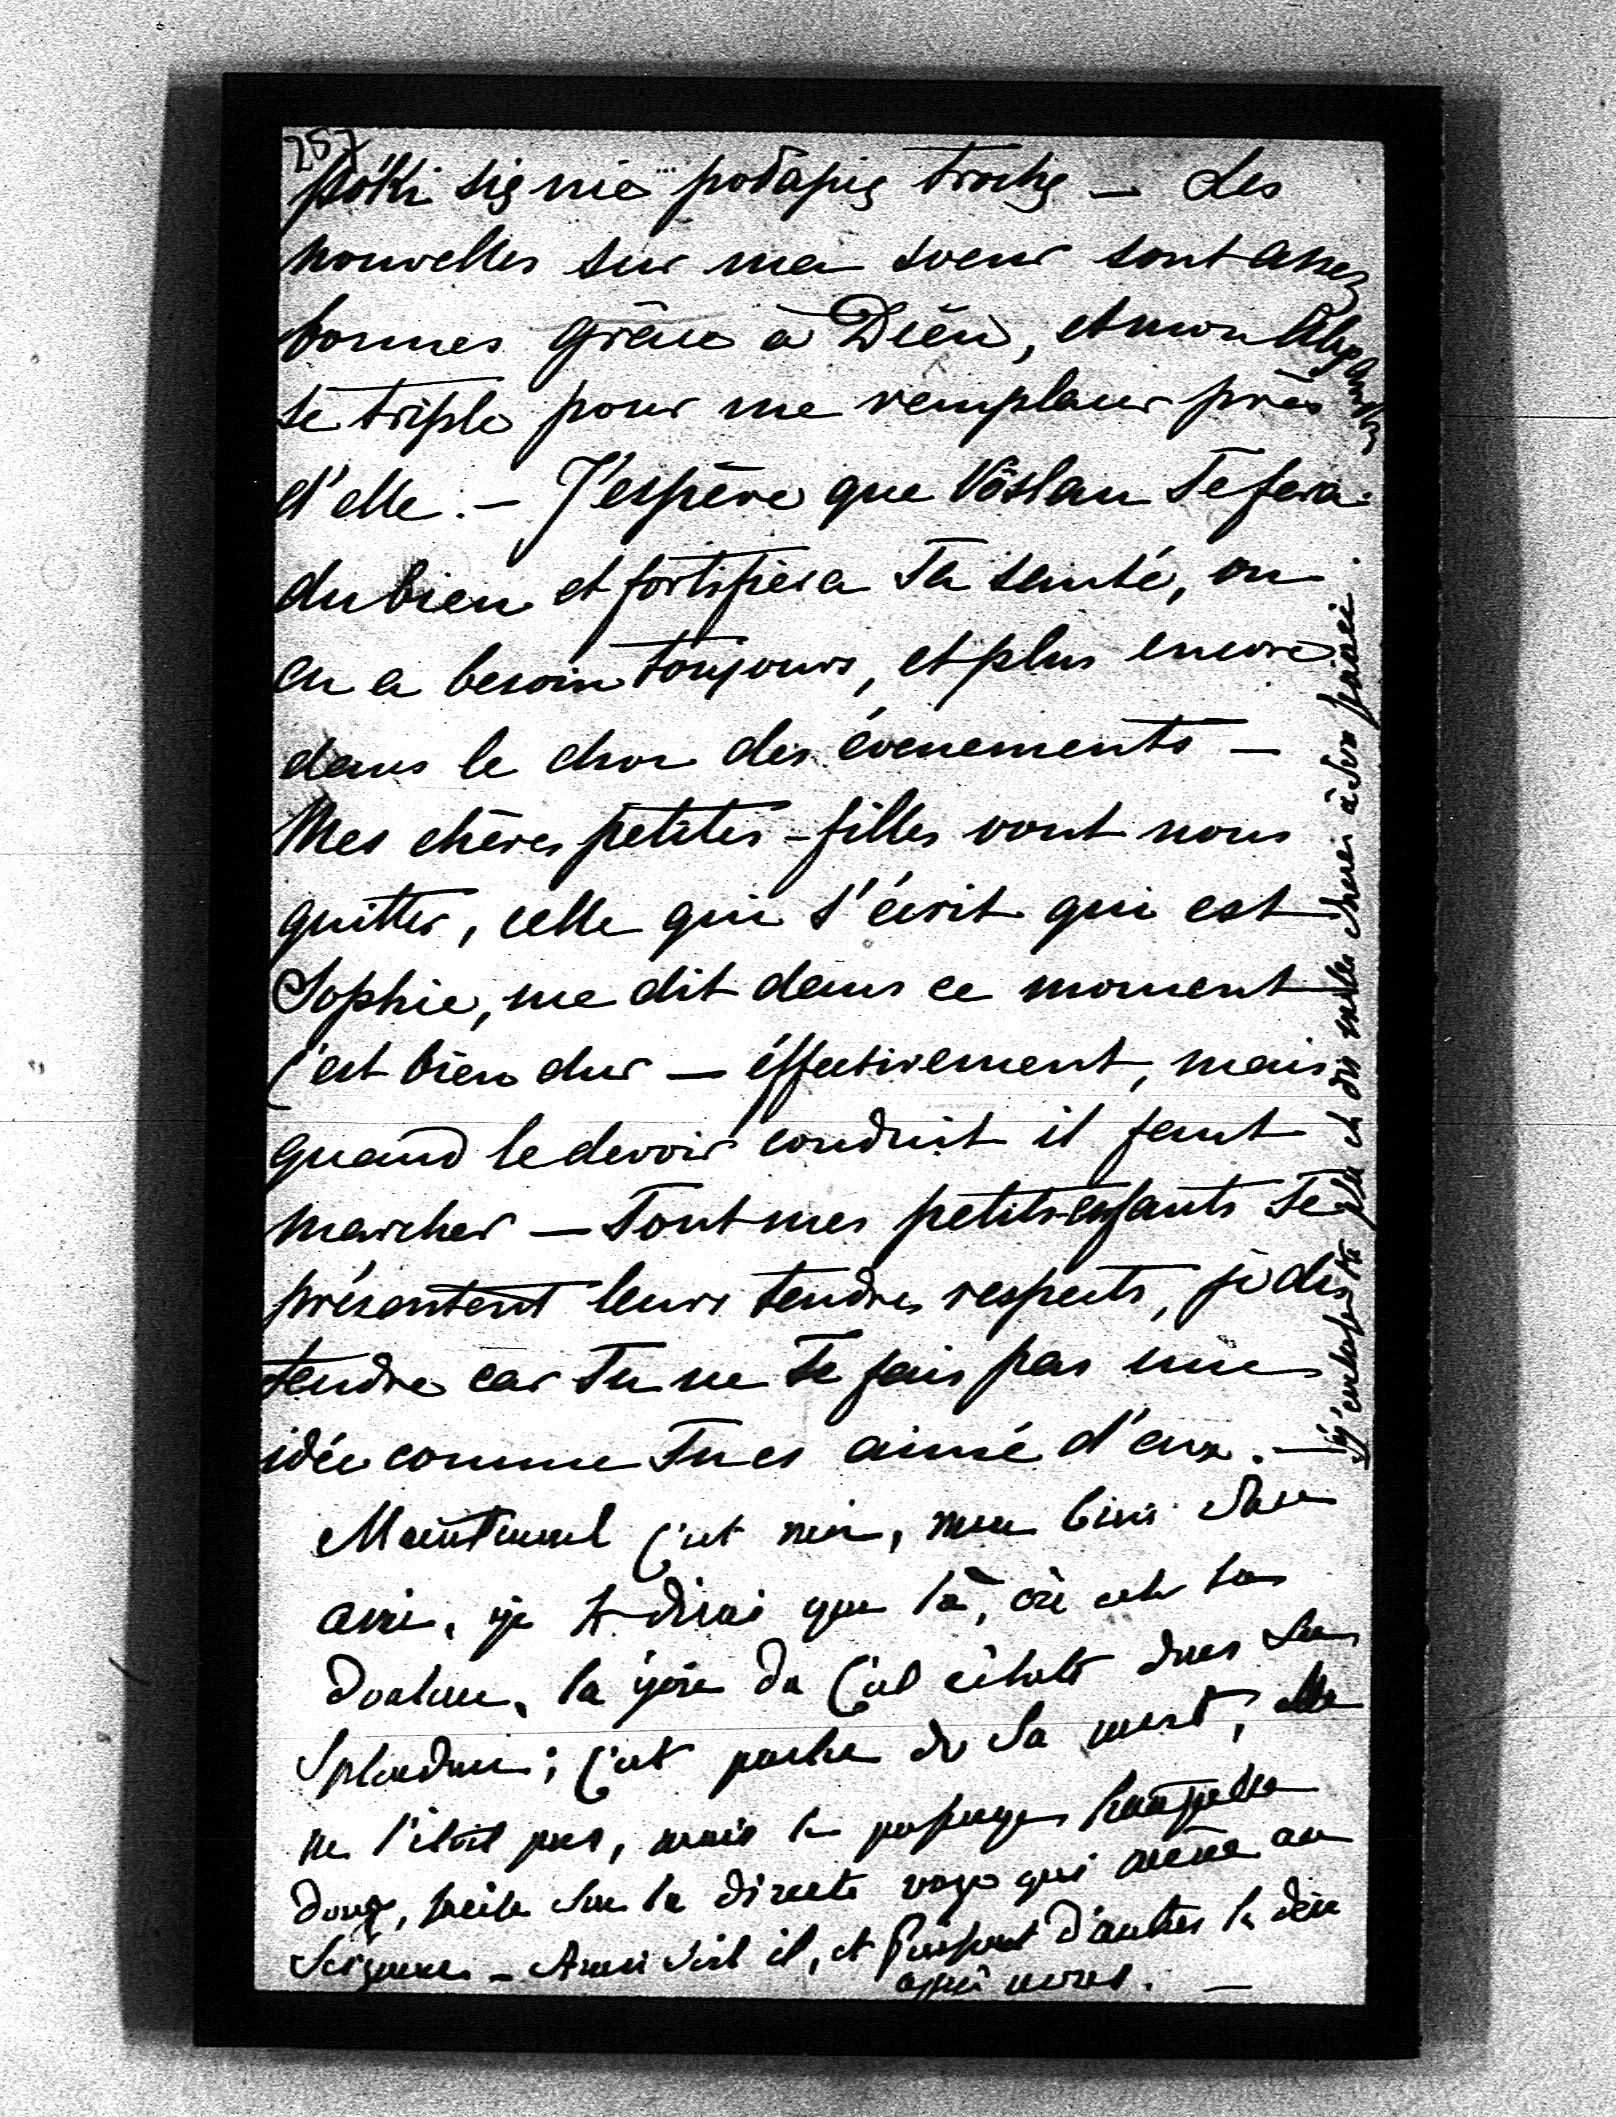 257
póki się nie podapię trochę — Les
nouvelles sur ma soeur sont assez
bonnes grâce à Dieu, et mon Alexandre
se triple pour me remplacer près
d'elle. — J'espère que Vöslau Te fera
du bien et fortifiera Ta santé, on
en a besoin toujours, et plus encore
dans le choc des évenements —
Mes chères petites-filles vont nous
quitter, celle qui s'écrit qui est
Sophie, me dit dans ce moment
c'est bien dur — éffectivement, mais
quand le devoir conduit il faut
marcher — Tout mes petits-enfants Te
présentent leurs tendres respects, je dis
tendre car Tu ne Te fais pas une
idée comme Tu es aimé d'eux. —
Maintenant c'est moi, mon bien cher
ami, je te dirai que là, où est ta
douleur, la joie du Ciel éclate dans sa
splendeur; c'est parler de sa mort, elle
ne l'était pas, mais le passage
doux, sur la directe voye qui mène au
Seigneur — Ainsi soit il, et d'autres le dire
après nous. —
j'embrasse ta et dis mille choses à Son